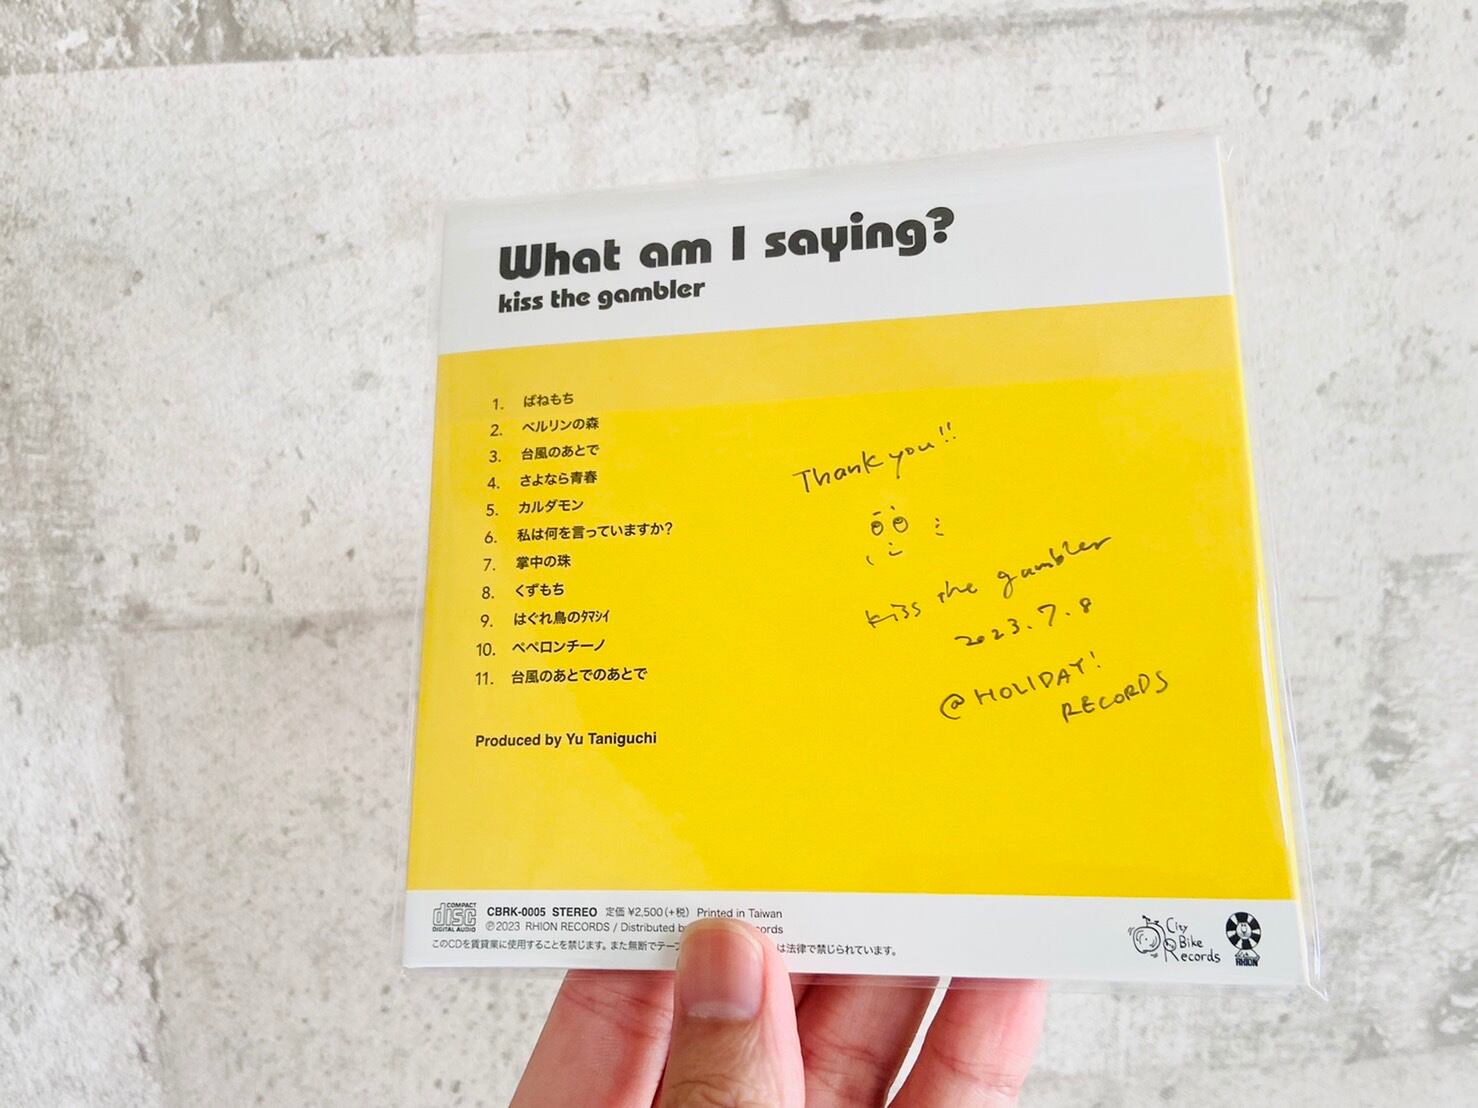 What am I saying?
kiss the gambler
1. ばねもち
2. ベルリンの森
3. 台風のあとで
4. さよなら青春
5. カルダモン
6. 私は何を言っていますか?
7. 掌中の珠
8. くずもち
9. はぐれ鳥のﾀﾏｼｲ
10. ペペロンチーノ
11. 台風のあとでのあとで
Produced by Yu Taniguchi
Thank you!!
kiss the gambler
2023.7.8
@HOLIDAY!
RECORDS
COMPACT
disc
DIGITAL AUDIO
CBRK-0005 STEREO 定価 ¥2,500(+税) Printed in Taiwan
℗2023 RHION RECORDS / Distributed by cords
このCDを賃貸業に使用することを禁じます。また無断でテープ は法律で禁じられています。
City
Bike
Records
RHION